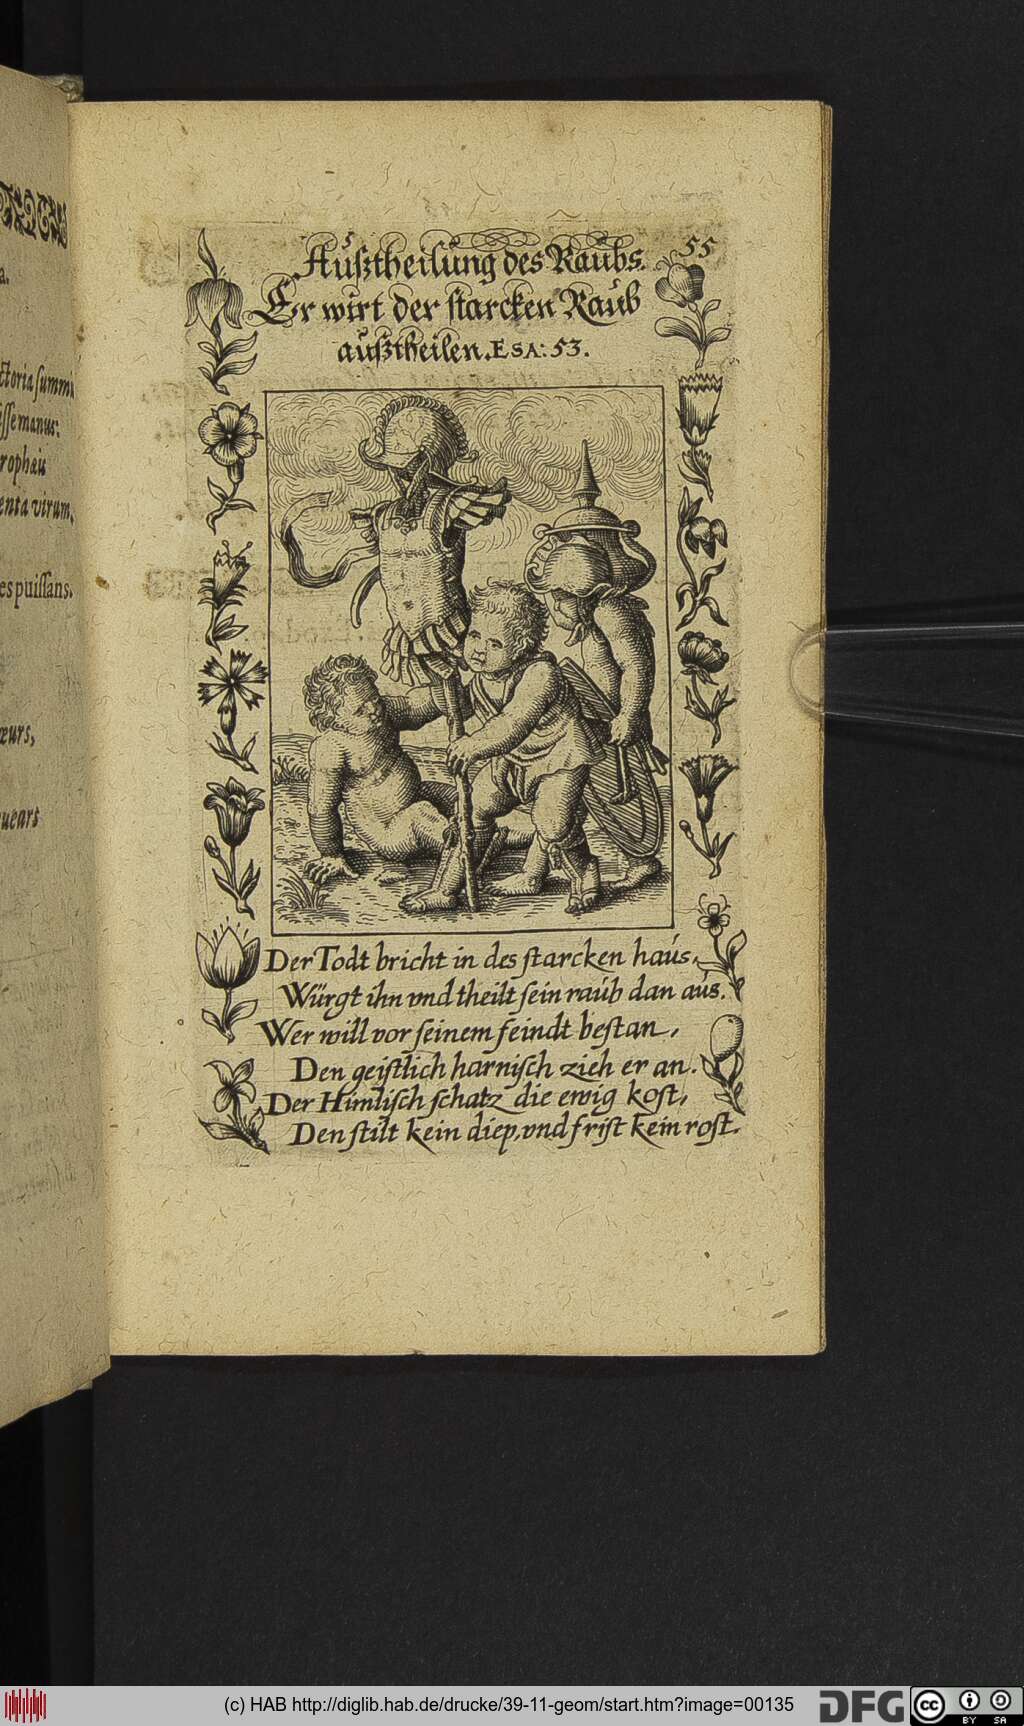 55
Außtheilung des Raubs.
Er wirt der starcken Raub
außtheilen. ESA: 53.
Der Todt bricht in des starcken haus,
Würgt ihn vnd theilt sein raub dan aus.
Wer will vor seinem feindt bestan,
Den geistlich harnisch zieh er an.
Der Himlisch schatz die ewig kost,
Den stilt kein diep, vnd frist kein rost.
a.
ctoria summi
esse manus:
rophæis
enta virum,
es puissans.
œurs,
ueurs
(c) HAB http://diglib.hab.de/drucke/39-11-geom/start.htm?image=00135
DFG
cc
BY SA